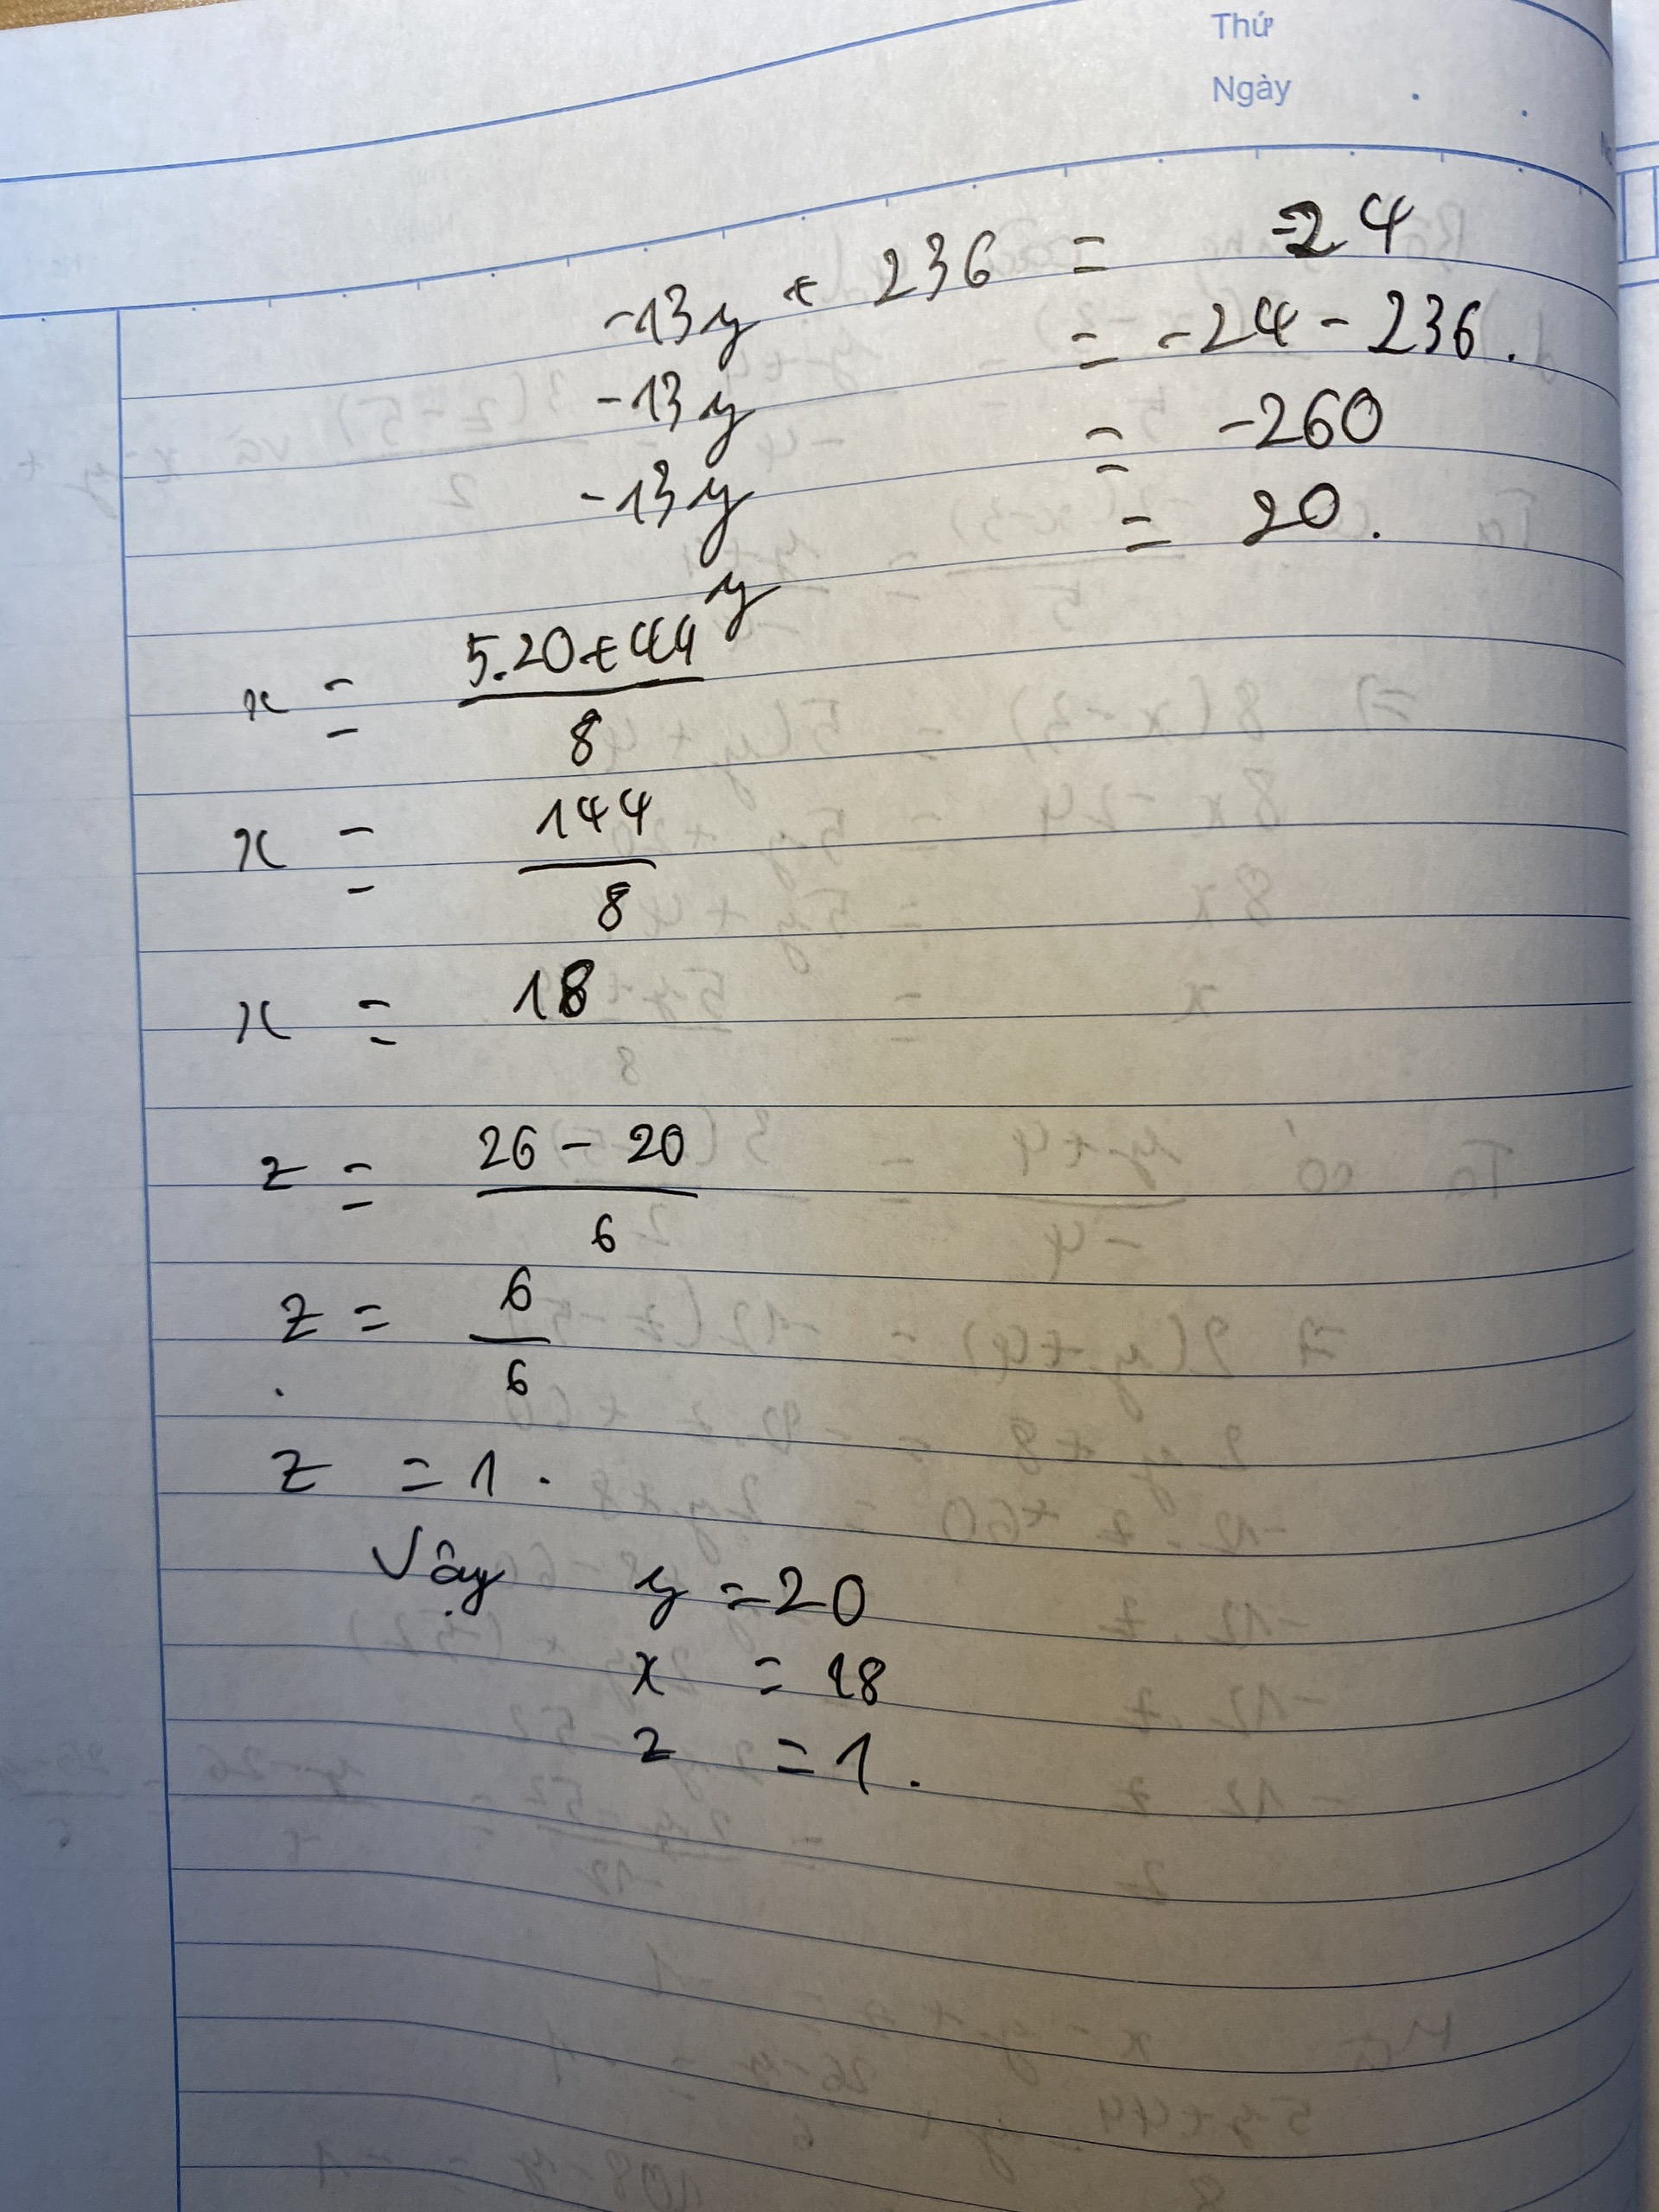 Thứ
Ngày
-13y + 236 = -24
-13y = -24 - 236.
-13y = -260
y = 20.
x = 5.20+44 / 8
x = 144 / 8
x = 18
z = 26 - 20 / 6
z = 6 / 6
z = 1.
Vậy y = 20
x = 18
z = 1.